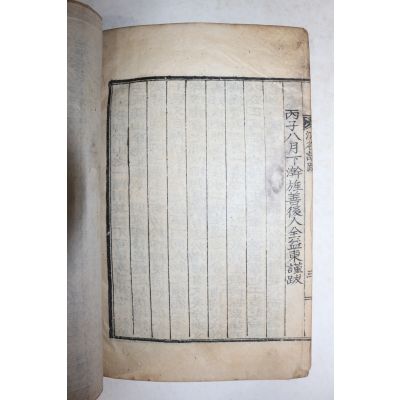 丙子八月下澣旌善後人全益東謹跋
三